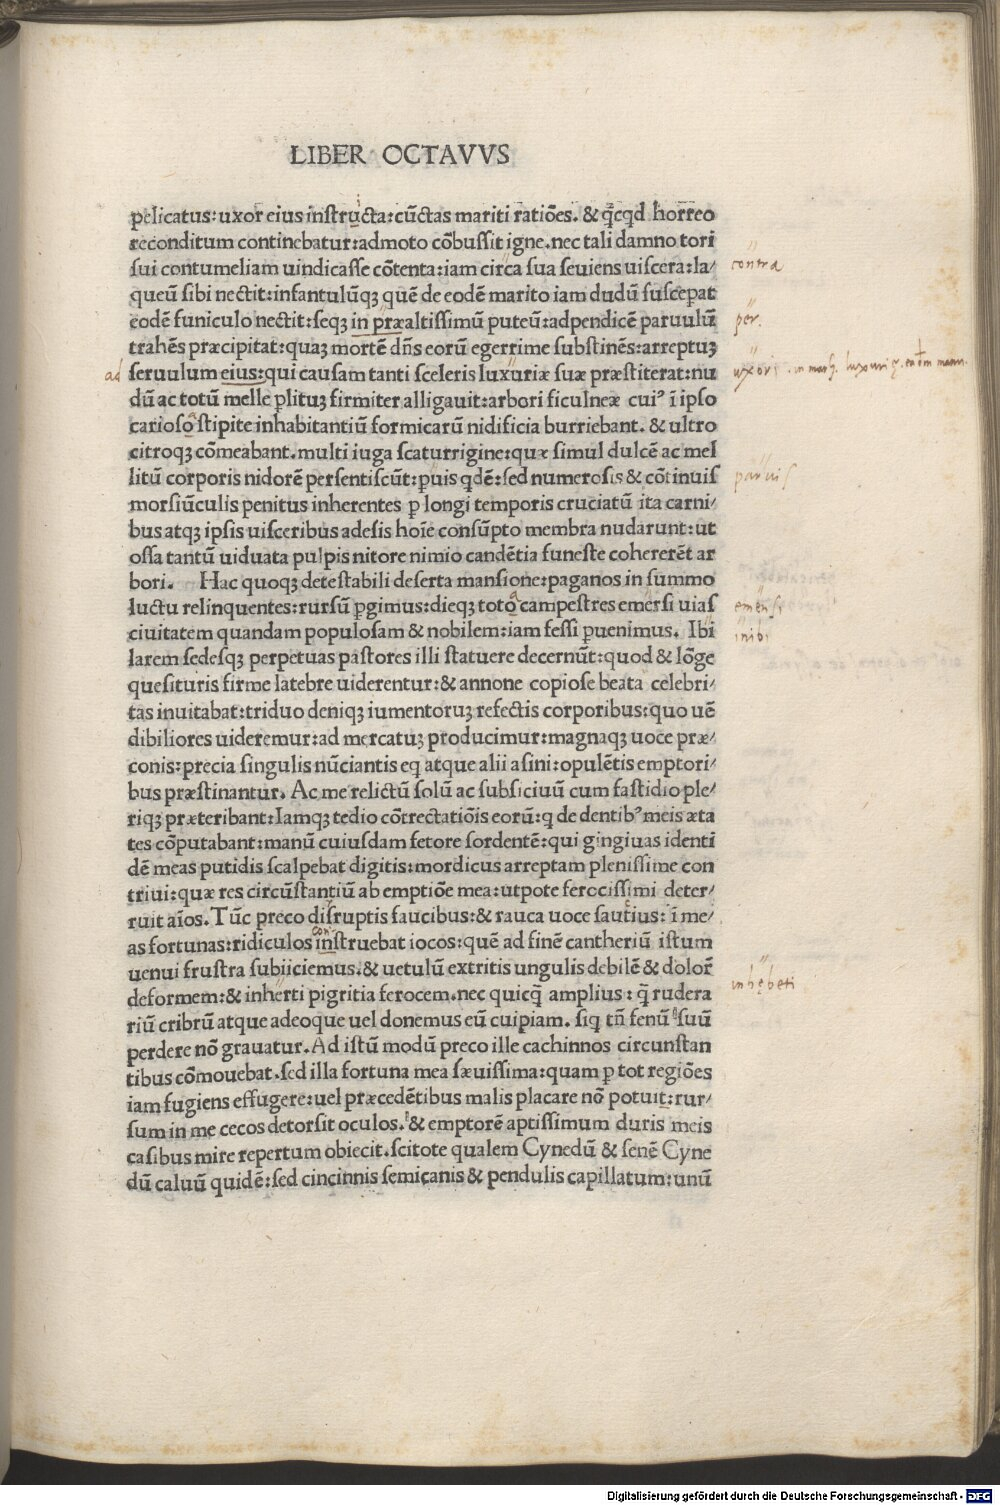 LIBER OCTAVVS
pelicatus: uxor eius instructa: cũctas mariti ratiões. & q̃cqd horreo
reconditum continebatur: admoto cõbussit igne. nec tali damno tori
sui contumeliam uindicasse cõtenta: iam circa sua seuiens uiscera: la/
contra
queũ sibi nectit: infantulũqꝫ quẽ de eodẽ marito iam dudũ susceperat
eodẽ funiculo nectit: seqꝫ in præaltissimũ puteũ: adpendicẽ paruulũ
per.
trahẽs præcipitat: quaꝫ mortẽ dñs eorũ egerrime substinẽs: arreptuꝫ
ad
seruulum eius: qui causam tanti sceleris luxuriæ suæ præstiterat: nu
uxori.
dũ ac totũ melle plituꝫ firmiter alligauit: arbori ficulneæ cuiꝰ ĩ ipso
carioso stipite inhabitantiũ formicarũ nidificia burriebant. & ultro
citroqꝫ cõmeabant. multi iuga scaturrigine: quæ simul dulcẽ ac mel
litũ corporis nidorẽ persentiscũt: puis qdẽ: sed numerosis & cõtinuis
paruis
morsiũculis penitus inherentes ꝑ longi temporis cruciatũ ita carni/
bus atqꝫ ipsis uisceribus adesis hoĩe consũpto membra nudarunt: ut
ossa tantũ uiduata pulpis nitore nimio candẽtia funeste cohererẽt ar
bori. Hac quoqꝫ detestabili deserta mansione: paganos in summo
luctu relinquentes: rursũ ꝑgimus: dieqꝫ toto campestres emersi uias
emensi
ciuitatem quandam populosam & nobilem: iam fessi ꝑuenimus. Ibi
inibi
larem sedesqꝫ perpetuas pastores illi statuere decernũt: quod & lõge
quesituris firme latebre uiderentur: & annone copiose beata celebri/
tas inuitabat: triduo deniqꝫ iumentoruꝫ refectis corporibus: quo uẽ
dibiliores uideremur: ad mercatuꝫ producimur: magnaqꝫ uoce præ/
conis: precia singulis nũciantis eq atque alii asini: opulẽtis emptori/
bus præstinantur. Ac me relictũ solũ ac subsiciuũ cum fastidio ple/
riqꝫ præteribant: Iamqꝫ tedio cõtrectatiõis eorũ: q̃ de dentibꝰ meis æta
tes cõputabant: manũ cuiusdam fetore sordentẽ: qui gingiuas identi
dẽ meas putidis scalpebat digitis: mordicus arreptam plenissime con
triui: quæ res circũstantiũ ab emptiõe mea: utpote ferocissimi deter/
ruit aĩos. Tũc preco disruptis faucibus: & rauca uoce sautius: ĩ me/
con
as fortunas: ridiculos instruebat iocos: quẽ ad finẽ cantheriũ istum
uenui frustra subiiciemus. & uetulũ extritis ungulis debilẽ & dolor̃
deformem: & inherti pigritia ferocem. nec quicq̃ amplius: q̃ rudera
inhebeti
riũ cribrũ atque adeoque uel donemus eũ cuipiam. siq tñ fenũ suũ
perdere nõ grauatur. Ad istũ modũ preco ille cachinnos circunstan
tibus cõmouebat. sed illa fortuna mea sæuissima: quam ꝑ tot regiões
iam fugiens effugere: uel præcedẽtibus malis placare nõ potuit: rur/
sum in me cecos detorsit oculos. & emptorẽ aptissimum duris meis
casibus mire repertum obiecit. scitote qualem Cynedũ & senẽ Cyne
dũ caluũ quidẽ: sed cincinnis semicanis & pendulis capillatum: unũ
Digitalisierung gefördert durch die Deutsche Forschungsgemeinschaft - DFG